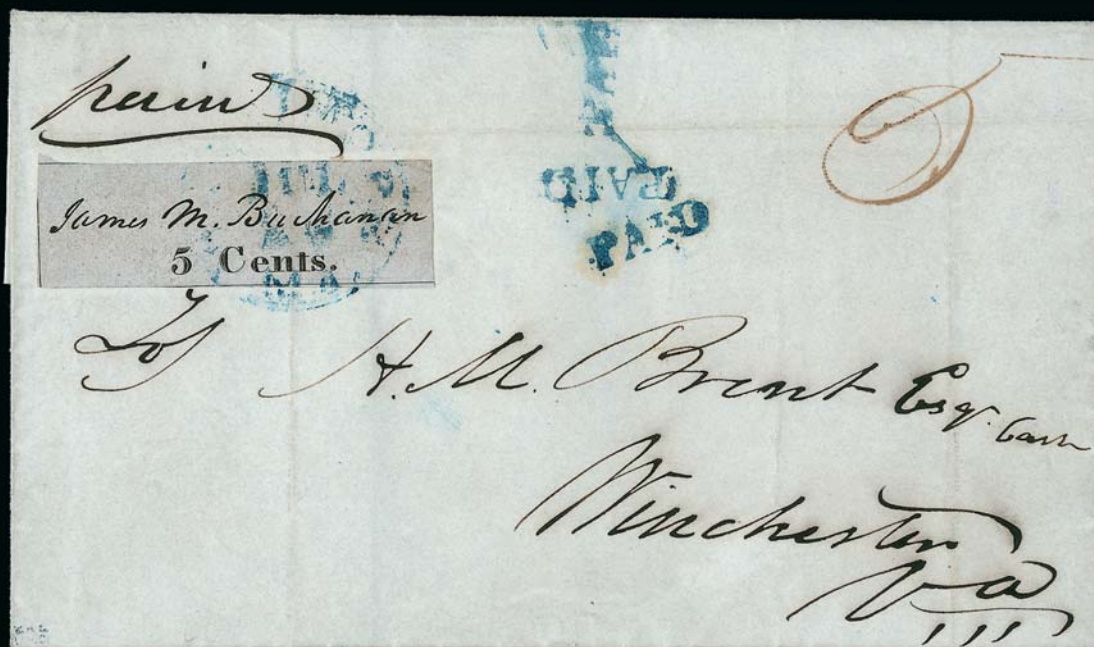 paid
James M. Buchanan
5 Cents.
MD.
PAID
PAID
5
To
H. M. Brent Esqr. Cash
Winchester
Va